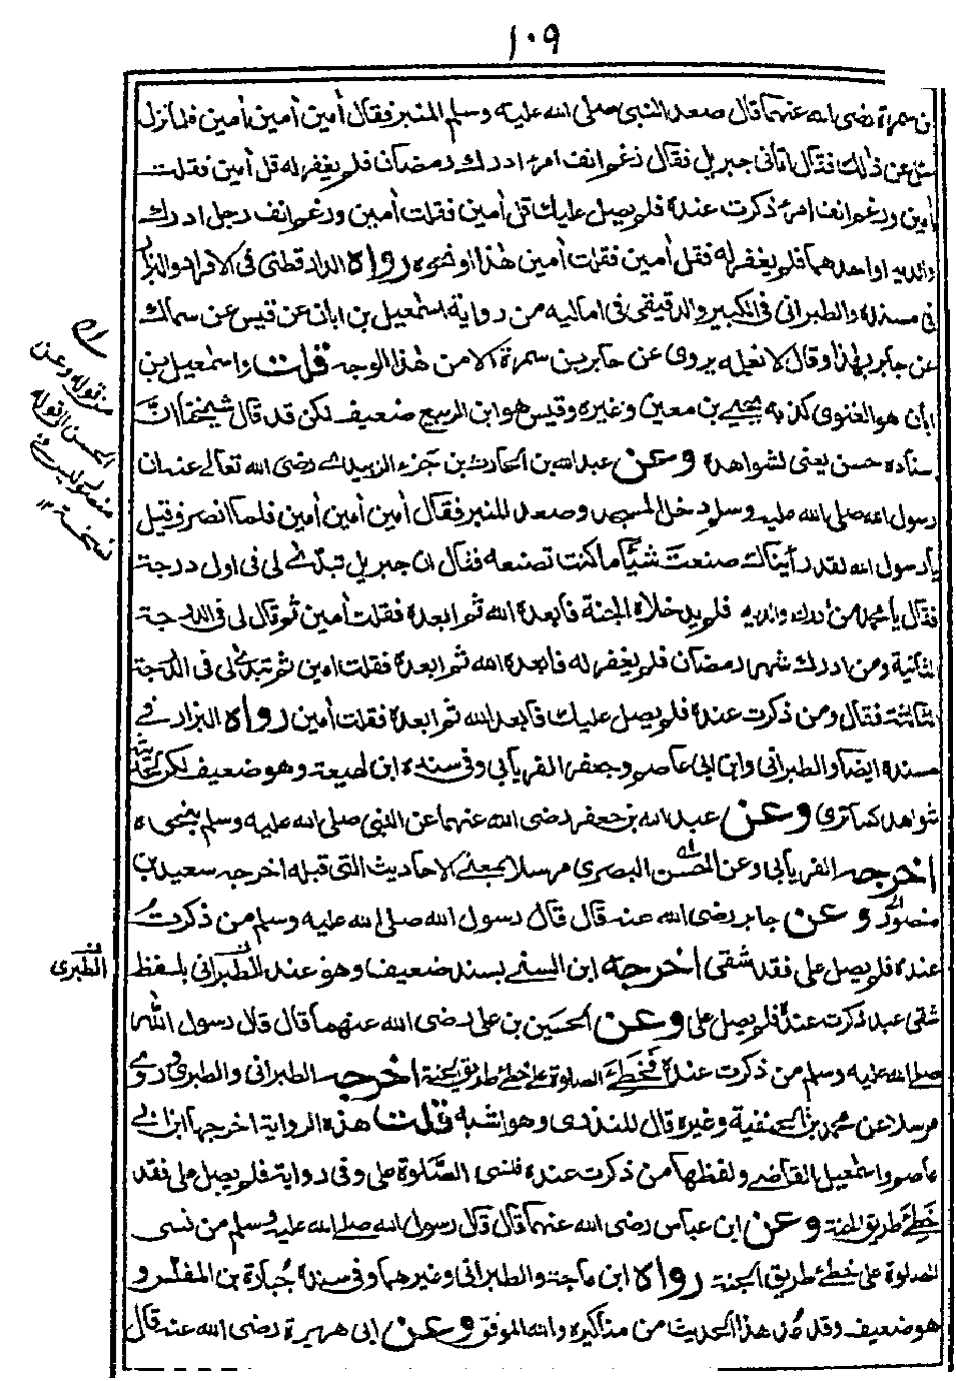 ١٠٩
بن سمرة رضى الله عنهما قال صعد النبى صلى الله عليه وسلم المنبر فقال أمين أمين أمين فلما نزل
سئل عن ذلك فقال اتانى جبريل فقال رغم انف امرء ادرك رمضان فلم يغفر له قل أمين فقلت
أمين ورغم انف امرء ذكرت عنده فلم يصل عليك قل أمين فقلت أمين ورغم انف رجل ادرك
والديه او احدهما فلم يغفر له فقل أمين فقلت أمين هذا او نحوه رواه الدارقطنى فى الافراد والبزار
فى مسنده والطبرانى فى الكبير والدقيقى فى اماليه من رواية اسمعيل بن ابان عن قيس عن سماك
عن جابر بهذا وقال لا نعلمه يروى عن جابر بن سمرة الا من هذا الوجه قلت واسمعيل بن
ابان هو الغنوى كذبه يحيى بن معين وغيره وقيس هو ابن الربيع ضعيف لكن قد قال شيخنا ان
اسناده حسن يعنى لشواهده وعن عبد الله بن الحارث بن جزء الزبيدى رضى الله تعالى عنه ان
رسول الله صلى الله عليه وسلم دخل المسجد وصعد المنبر فقال أمين أمين أمين فلما انصرف قيل
يا رسول الله لقد رأيناك صنعت شيئا ما كنت تصنعه فقال ان جبريل تبدى لى فى اول درجة
فقال يا محمد من ادرك والديه فلم يدخلاه الجنة فابعده الله ثم ابعده فقلت أمين ثم قال لى فى الدرجة
الثانية ومن ادرك شهر رمضان فلم يغفر له فابعده الله ثم ابعده فقلت امين ثم تبدى لى فى الدرجة
الثالثة فقال ومن ذكرت عنده فلم يصل عليك فابعد الله ثم ابعده فقلت أمين رواه البزار فى
مسنده ايضا والطبرانى وابن ابى عاصم وجعفر الفريابى وفى سنده ابن لهيعة وهو ضعيف لكن لحديثه
شواهد كما ترى وعن عبد الله بن جعفر رضى الله عنهما عن النبى صلى الله عليه وسلم بنحوه
اخرجه الفريابى وعن الحسن البصرى مرسلا بمعنى الاحاديث التى قبله اخرجه سعيد بن
منصور وعن جابر رضى الله عنه قال قال رسول الله صلى الله عليه وسلم من ذكرت
عنده فلم يصل على فقد شقى اخرجه ابن السنى بسند ضعيف وهو عند الطبرانى بلفظ
شقى عبد ذكرت عنده فلم يصل على وعن الحسين بن على رضى الله عنهما قال قال رسول الله
صلى الله عليه وسلم من ذكرت عنده فخطئ الصلوة على خطئ طريق الجنة اخرجه الطبرانى والطبرى وروى
مرسلا عن محمد بن الحنفية وغيره قال المنذرى وهو اشبه قلت هذه الرواية اخرجها ابن ابى
عاصم واسمعيل القاضى ولفظها من ذكرت عنده فنسى الصلوة على وفى رواية فلم يصل على فقد
خطئ طريق الجنة وعن ابن عباس رضى الله عنهما قال قال رسول الله صلى الله عليه وسلم من نسى
الصلوة على خطئ طريق الجنة رواه ابن ماجة والطبرانى وغيرهما وفى سنده جبارة بن المغلس و
هو ضعيف وقد عد هذا الحديث من مناكيره والله الموفق وعن ابى هريرة رضى الله عنه قال
من قوله وعن
الحسن الى قوله
منصور ليس فى
نسخة ١٢
الطبرى